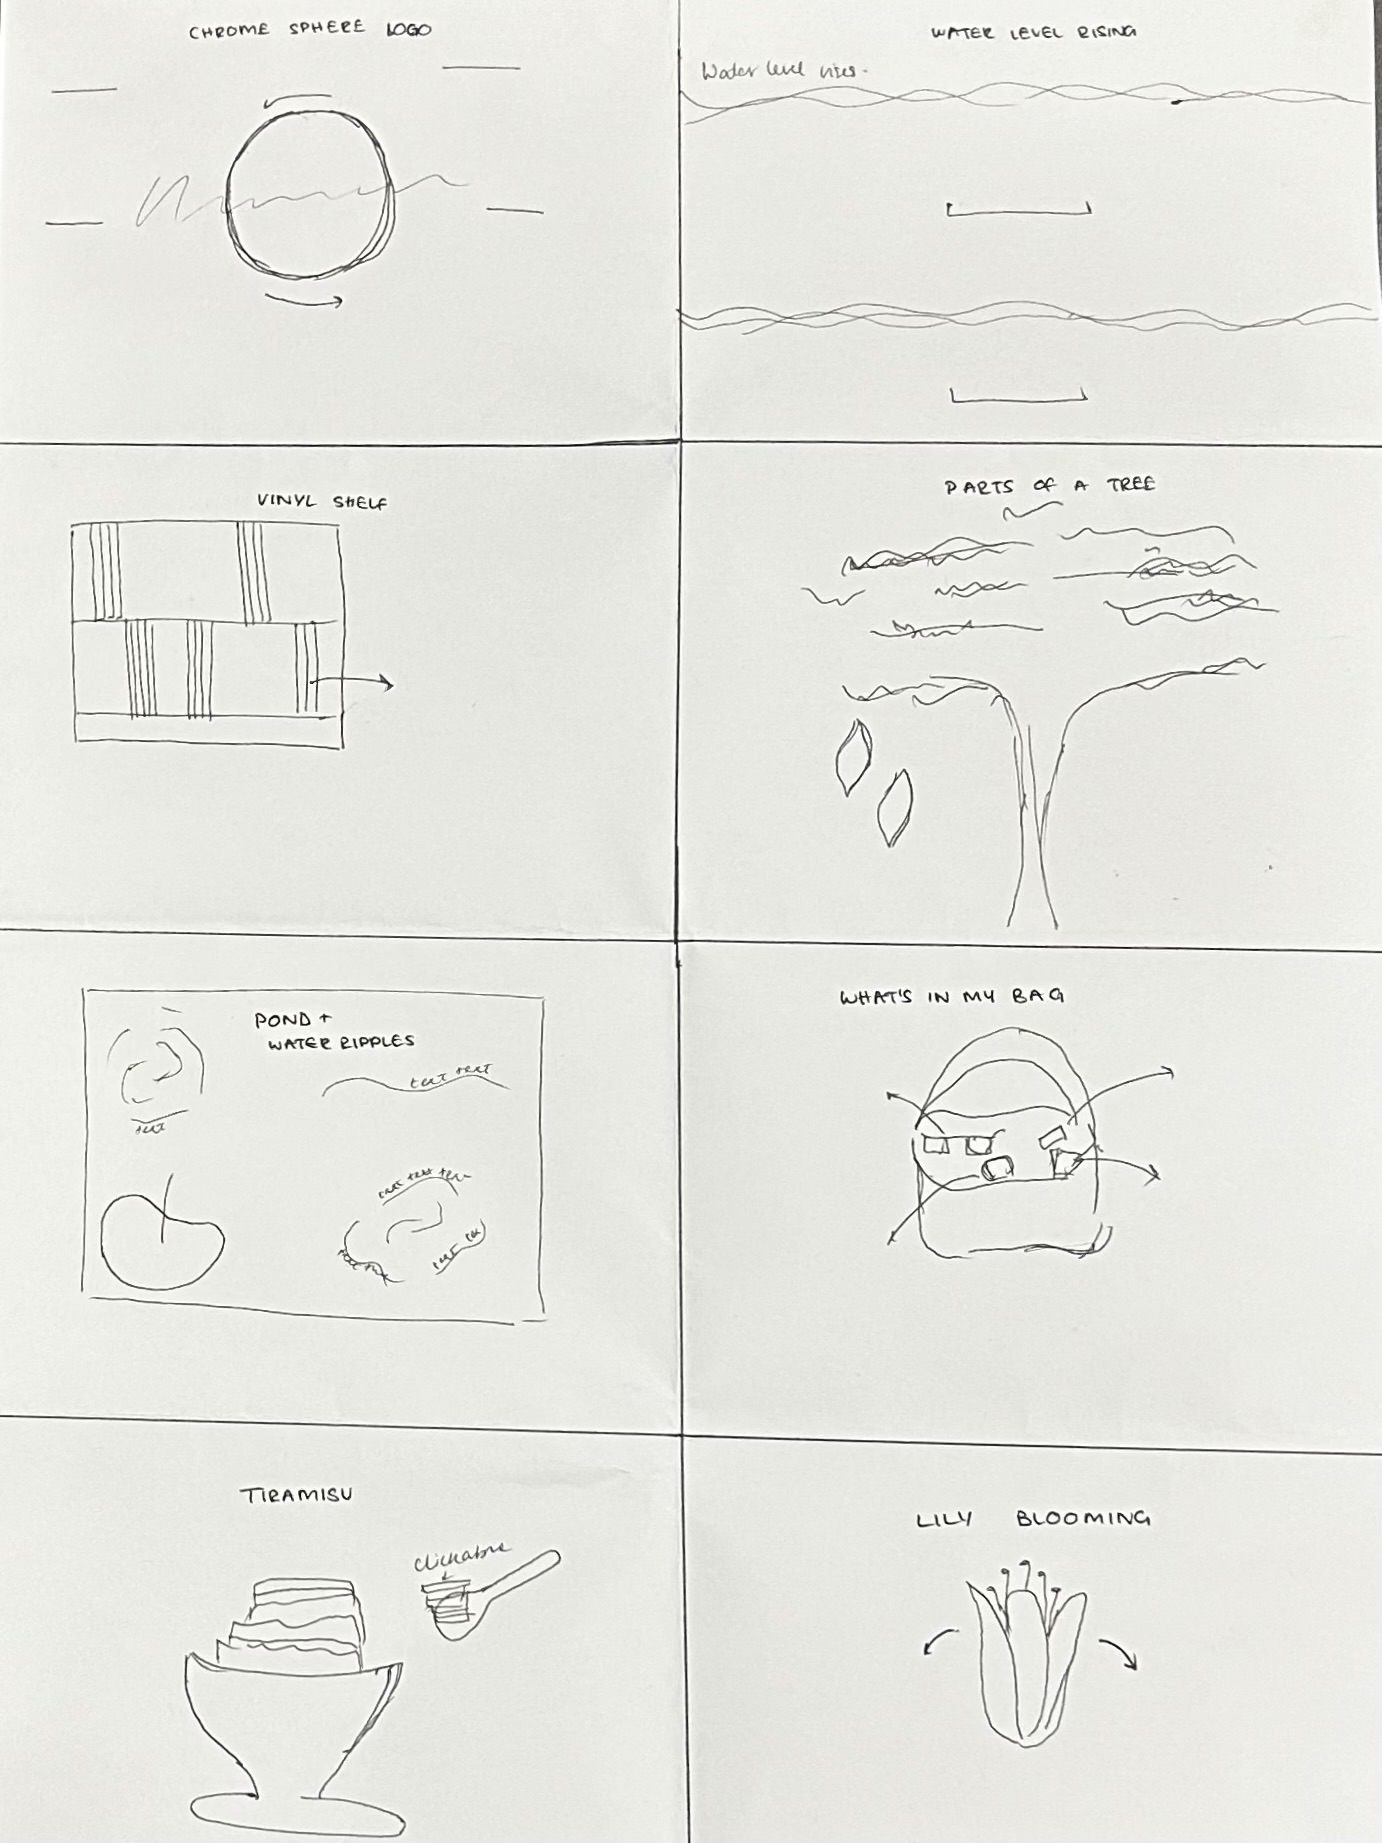 CHROME SPHERE LOGO
WATER LEVEL RISING
Water level rises.
VINYL SHELF
PARTS OF A TREE
POND +
WATER RIPPLES
text text
text
text text text
text text
WHAT'S IN MY BAG
TIRAMISU
clickable
LILY BLOOMING